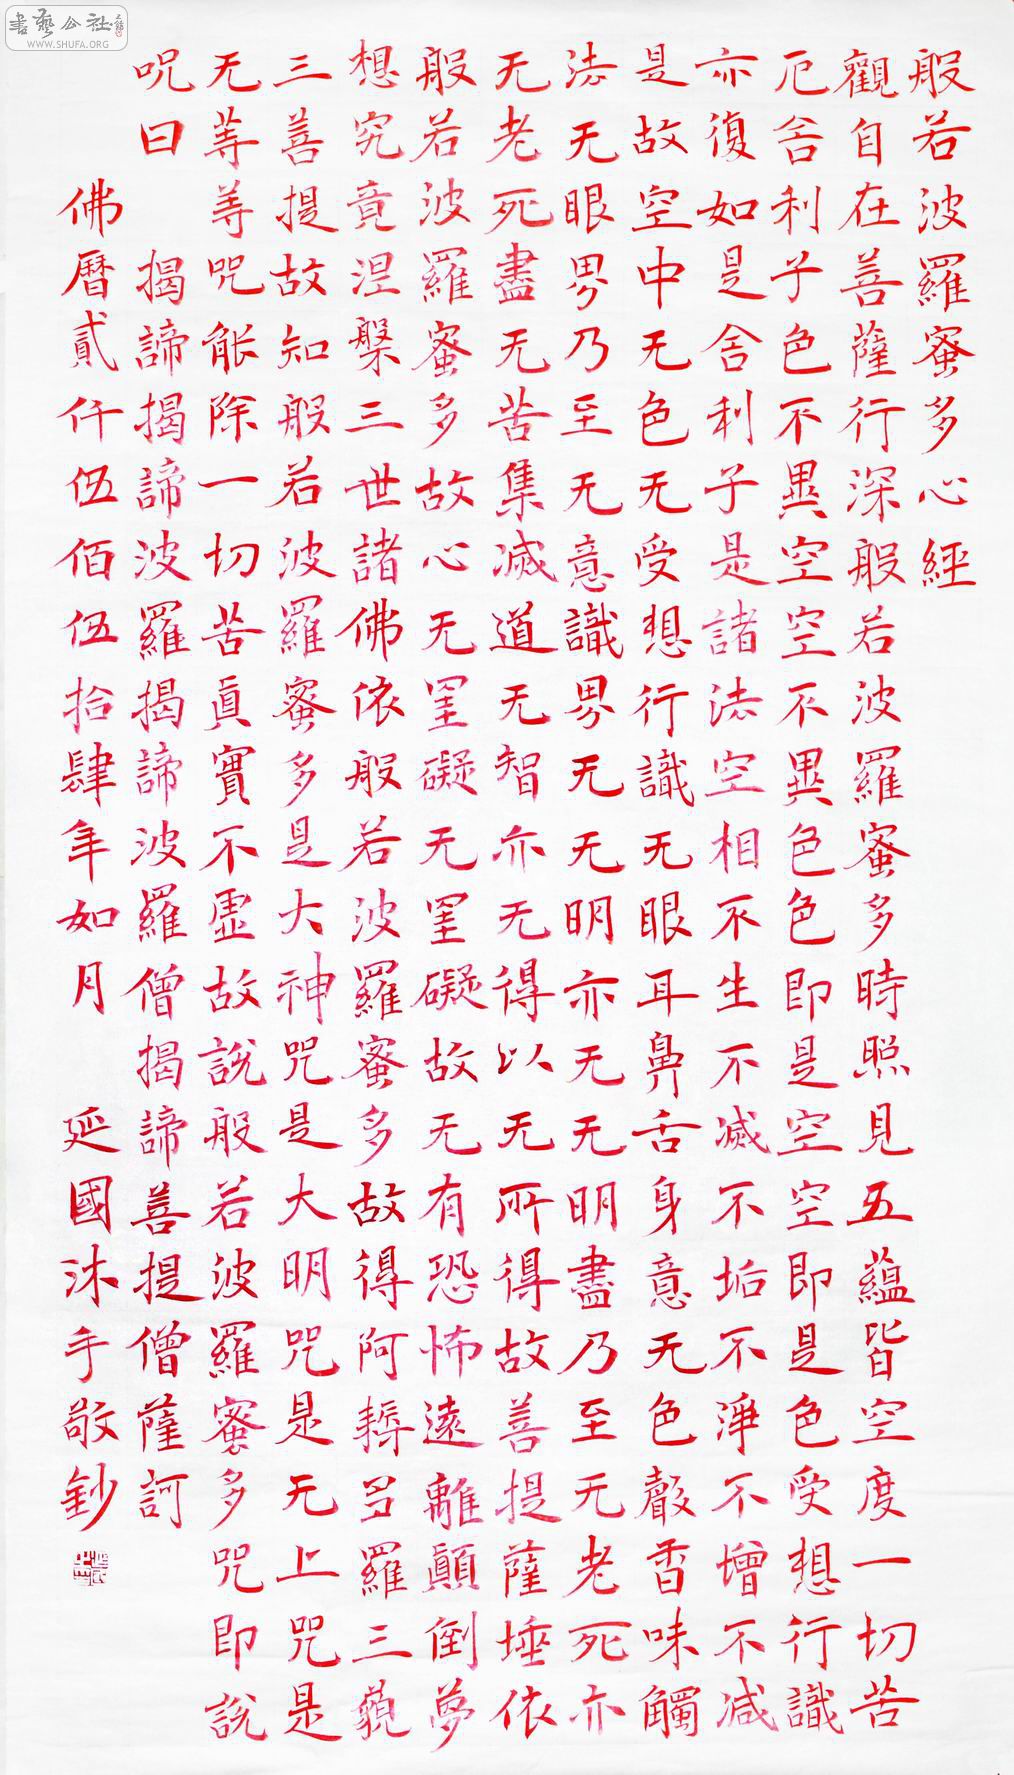 書藝公社
WWW.SHUFA.ORG
般若波羅蜜多心經
觀自在善薩行深般若波羅蜜多時照見五蘊皆空度一切苦
厄舍利子色不異空空不異色色即是空空即是色受想行識
亦復如是舍利子是諸法空相不生不滅不垢不淨不增不減
是故空中无色无受想行識无眼耳鼻舌身意无色聲香味觸
法无眼界乃至无意識界无无明亦无无明盡乃至无老死亦
无老死盡无苦集滅道无智亦无得以无所得故善提薩埵依
般若波羅蜜多故心无罣礙无罣礙故无有恐怖遠離顛倒夢
想究竟涅槃三世諸佛依般若波羅蜜多故得阿耨多羅三藐
三善提故知般若波羅蜜多是大神咒是大明咒是无上咒是
无等等咒能除一切苦真實不虛故說般若波羅蜜多咒即說
呪曰 揭諦揭諦波羅揭諦波羅僧揭諦善提僧薩訶
佛曆貳仟伍佰伍拾肆年如月 延國沐手敬鈔